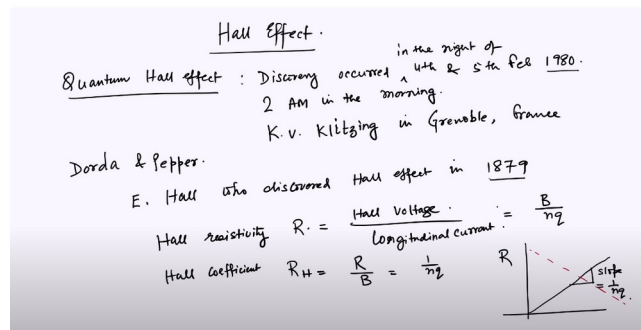 Hall Effect.
Quantum Hall effect : Discovery occurred in the night of 4th & 5th feb 1980.
2 AM in the morning.
K. v. Klitzing in Grenoble, France
Dorda & Pepper.
E. Hall who discovered Hall effect in 1879
Hall resistivity R. = Hall voltage. / longitudinal current. = B / nq
Hall coefficient R_H = R / B = 1 / nq
R
slope = 1 / nq.